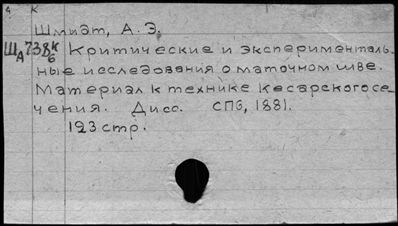 К
Шмидт, А. Э.
ША 738 К/6 Критические и эксперименталь-
ные исследования о маточном шве.
Материал к технике кесарского се-
чения. Дисс. СПб, 1881.
123 стр.